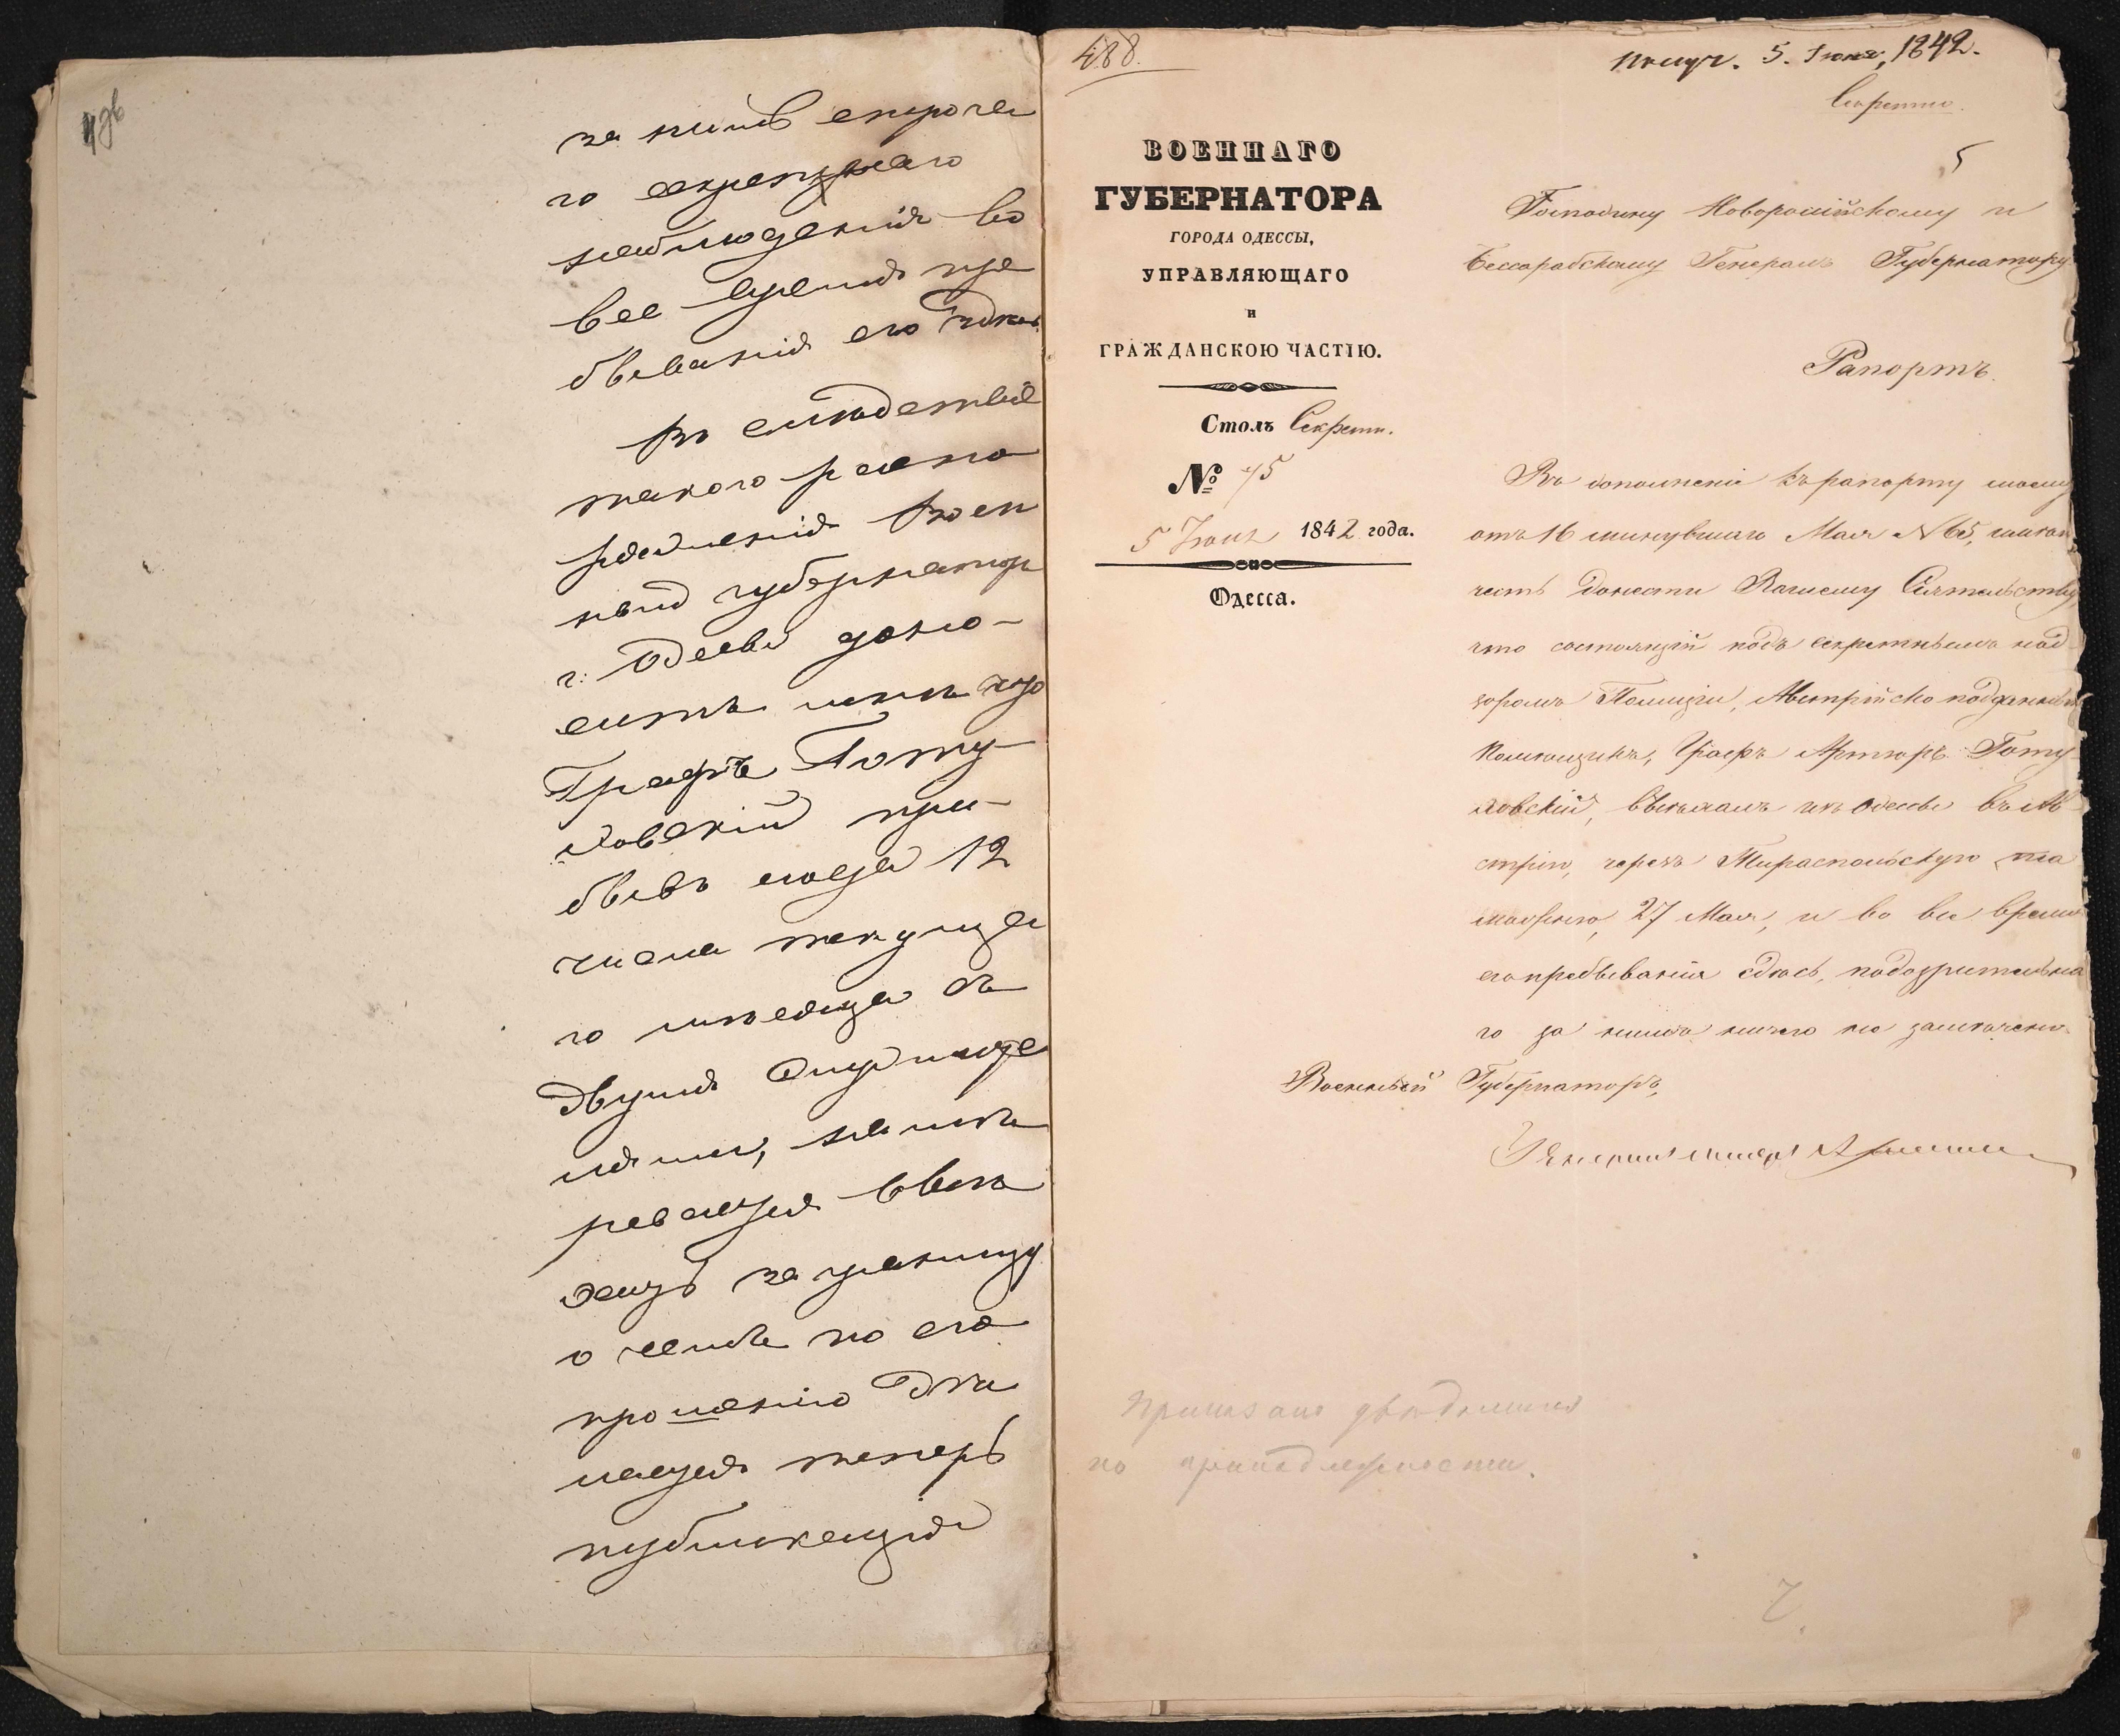 за нимъ строжай
го секретнаго
наблюденія во
все время пре
быванія его здѣсь.
Въ слѣдствіе
такого распо
ряженія Воен
ный Губернаторъ
г. Одессы доно-
ситъ мнѣ что
Графъ Поту-
ловскій при-
бывъ сюда 12
числа текуща
го мѣсяца съ
двумя
лями, намѣ
ревается
за границу
о чемъ по его
прошенію дѣ
лается теперь
публикація
488.
Получ. 5. Іюня, 1842.
Секретно.
5
ВОЕННАГО
ГУБЕРНАТОРА
ГОРОДА ОДЕССЫ,
УПРАВЛЯЮЩАГО
и
ГРАЖДАНСКОЮ ЧАСТІЮ.
Столъ Секретн.
№ 75
5 Іюня 1842 года.
Одесса.
Господину Новороссійскому и
Бессарабскому Генералъ Губернатору
Рапортъ.
Въ дополненіе къ рапорту моему
отъ 16 минувшаго Мая № 65, имѣю
честь донести Вашему Сіятельству,
что состоящій подъ секретнымъ над
зоромъ Полиціи, Австрійско подданный
Помѣщикъ, Графъ Артуръ Поту-
ловскій, выѣхалъ изъ Одессы въ Ав
стрію, чрезъ Тираспольскую та
можню, 27 Мая, и во все время
его пребыванія здѣсь, подозрительна
го за нимъ ничего не замѣчено.
Военный Губернаторъ,
Приказано увѣдомить
по принадлежности.